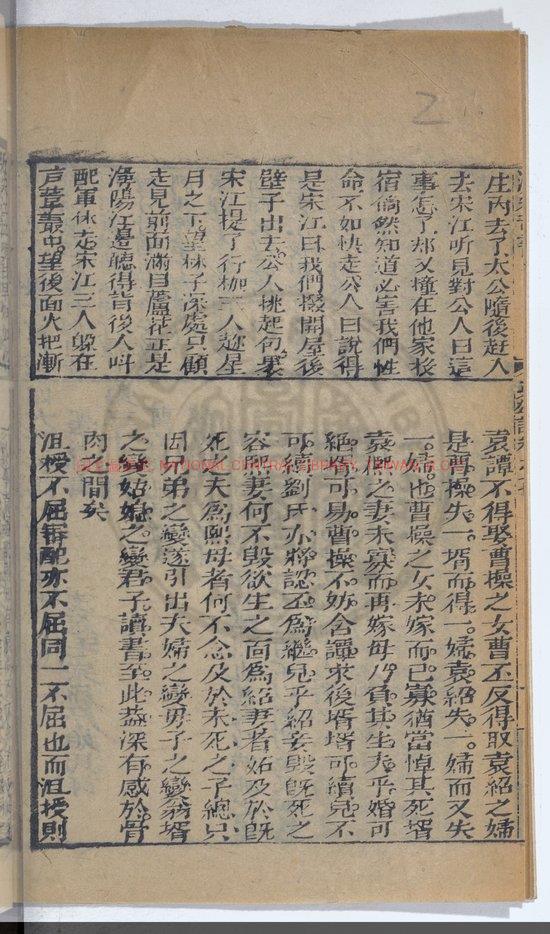 庄內去了太公隨後赶人
去宋江听見對公人曰這
事怎了却又撞在他家投
宿倘然知道必害我們性
命不如快走公人曰說得
是宋江曰我們撥開屋後
壁子出去公人挑起包裹
宋江提了行枷三人趂星
月之下望林子深處只顧
走見前面滿目蘆花正是
潯陽江邊聽得背後人叫
配軍休走宋江三人躲在
芦葦叢中望後面火把漸
袁譚不得娶曹操之女曹丕反得取袁紹之婦
是曹操失一壻而得一婦袁紹失一婦而又失
一婦也曹操之女未嫁而已寡猶當悼其死壻
袁熙之妻未寡而再嫁毋乃負其生夫乎婚可
絕姓可易曹操不妨舍譚求後壻壻可續兒不
可續劉氏亦將認丕為繼兒乎紹妾毀既死之
容熙妻何不毀欲生之面為紹妻者妬及於既
死之夫為熙母者何不念及於未死之子總只
因兄弟之變遂引出夫婦之變毋子之變翁壻
之變姑媳之變君子讀書至此葢深有感於骨
肉之間矣
沮授不屈審配亦不屈同一不屈也而沮授則
NATIONAL CENTRAL LIBRARY, TAIWAN R.O.C
2